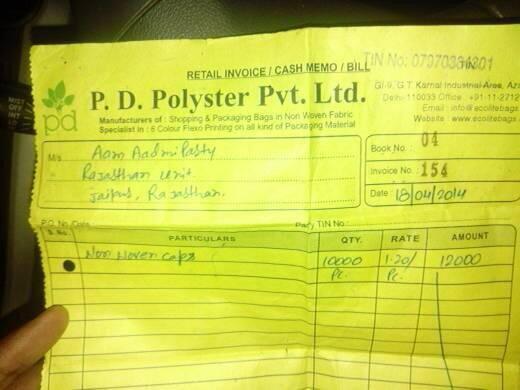 RETAIL INVOICE / CASH MEMO / BILL
TIN No: 07970384301
P. D. Polyster Pvt. Ltd.
pd
Manufacturers of : Shopping & Packaging Bags in Non Woven Fabric
Specialist in : 6 Colour Flexo Printing on all kind of Packaging Material
GI-9, G T Karnal Industrial Area, Aza
Delhi-110033 Office : +91-11-2712
Email : info@ecolitebags.
Website : www.ecolitebags
M/s Aam Aadmi Party
Rajasthan Unit
Jaipur, Rajasthan.
Book No.: 04
Invoice No.: 154
Date : 18/04/2014
P.O. No./Date
Party TIN No.
S. No. PARTICULARS QTY. RATE AMOUNT
Non Woven caps 10000 Pc. 1.20/ Pc. 12000